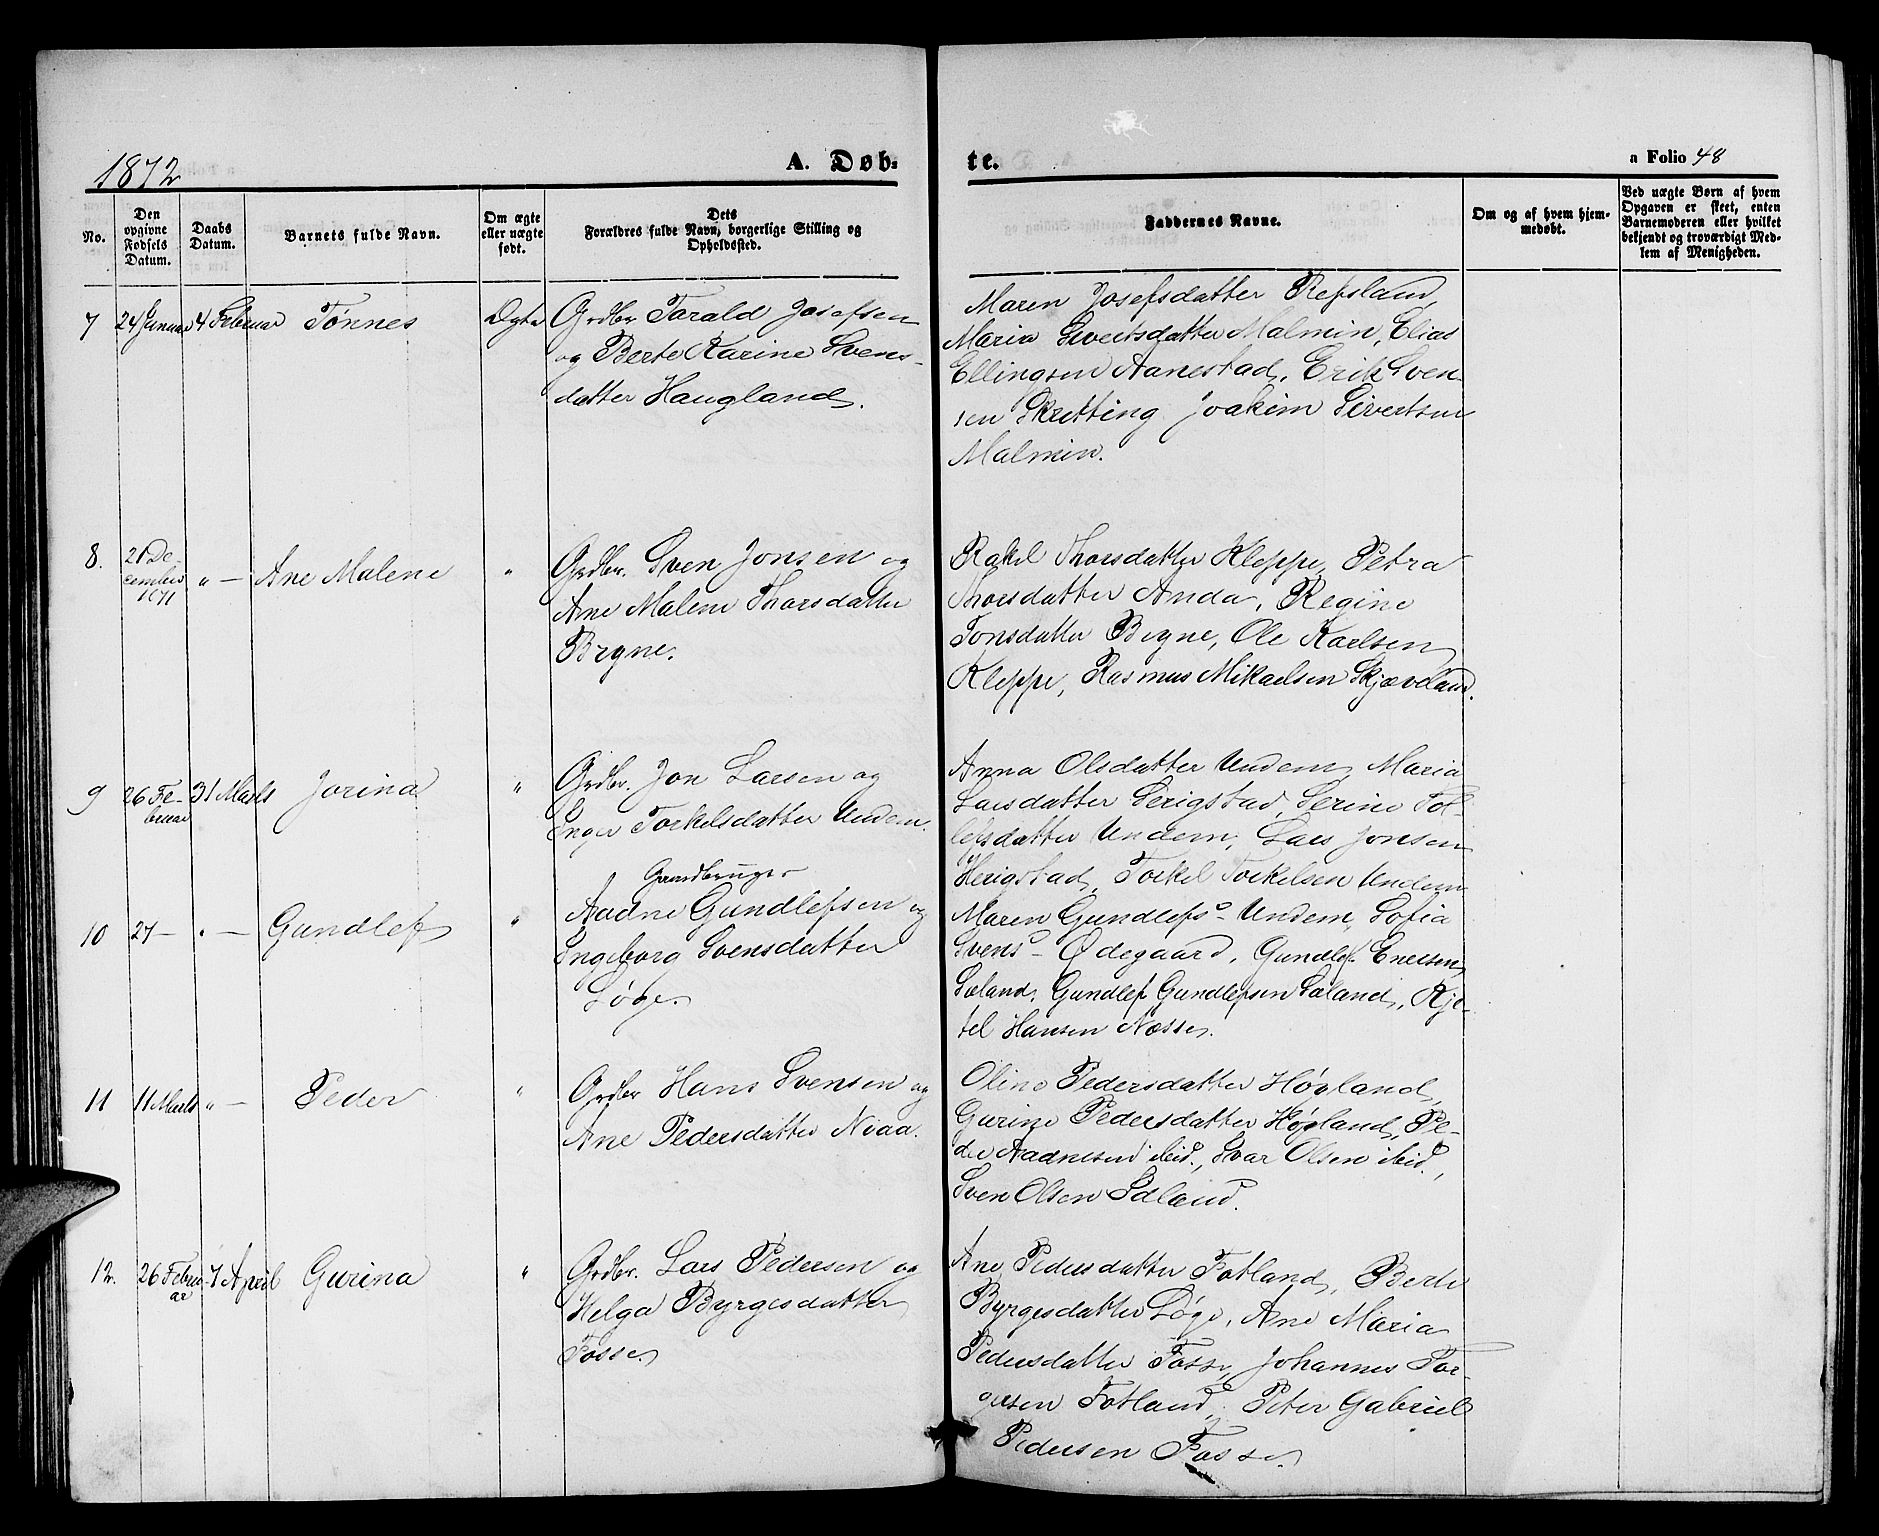 1872
A. Døb-
te.
a Folio 48
No.
Den
opgivne
Fødsels
Datum.
Daabs
Datum.
Barnets fulde Navn.
Om ægte
eller uægte
født.
Dets
Forældres fulde Navn, borgerlige Stilling og
Opholdssted.
Faddernes Navne.
Om og af hvem hjem-
medøbt.
Ved uægte Børn af hvem
Opgaven er skeet, enten
Barnemoderen eller hvilket
bekjendt og troværdigt Med-
lem af Menigheden.
7 24 Januar 4 Februar Tønnes Ægte
Grdbr. Torald Josefsen
og Berte Karine Svens-
datter Haugland.
Maren Josefsdatter Refsland,
Maria Sivertsdatter Malmin, Elias
Ellingsen Aanestad, Erik Sven-
sen Skretting Joakim Sivertsen
Malmin.
8. 21 De-
cember
1871
" — Ane Malene "
Grdbr. Sven Jonsen og
Ane Malene Thorsdatter
Bryne.
Rakel Thorsdatter Kleppe, Petra
Thorsdatter Anda, Regine
Tonsdatter Bryne, Ole Karlsen
Kleppe, Rasmus Mikaelsen Skjæveland.
9 26 Fe-
bruar
31 Marts Jorina "
Grdbr. Jon Larsen og
Inger Torkelsdatter Undem.
Anna Olsdatter Undem, Maria
Larsdatter Serigstad, Serine Tol-
lefsdatter Undem, Lars Jonsen
Herigstad, Torkel Torkelsen Undem
10 27 — " — Gundlef "
Gaardbruger
Aadne Gundlefsen og
Ingeborg Svensdatter
Løge.
Maren Gundlefsd- Undem, Sofia
Svensd- Ødegaard, Gundlef
Søland, Gundlef Gundlefsen Søland, Kje-
tel Hansen Næsse.
11 11 Marts " — Peder "
Grdbr Hans Svensen og
Ane Pedersdatter Njaa.
Oline Pedersdatter Høyland,
Gurine Pedersdatter Høyland, Pe-
der Aadnesen ibid., Ivar Olsen ibid.,
Sven Olsen Edland.
12. 26 Febru-
ar
1 April Gurina "
Grdbr. Lars Pedersen og
Helga Byrgesdatter
Fosse.
Ane Pedersdatter Fotland, Berte
Byrgesdatter Løge, Ane Maria
Pedersdatter Fosse, Johannes Tor-
gersen Fotland, Peter Gabriel
Pedersen Fosse.